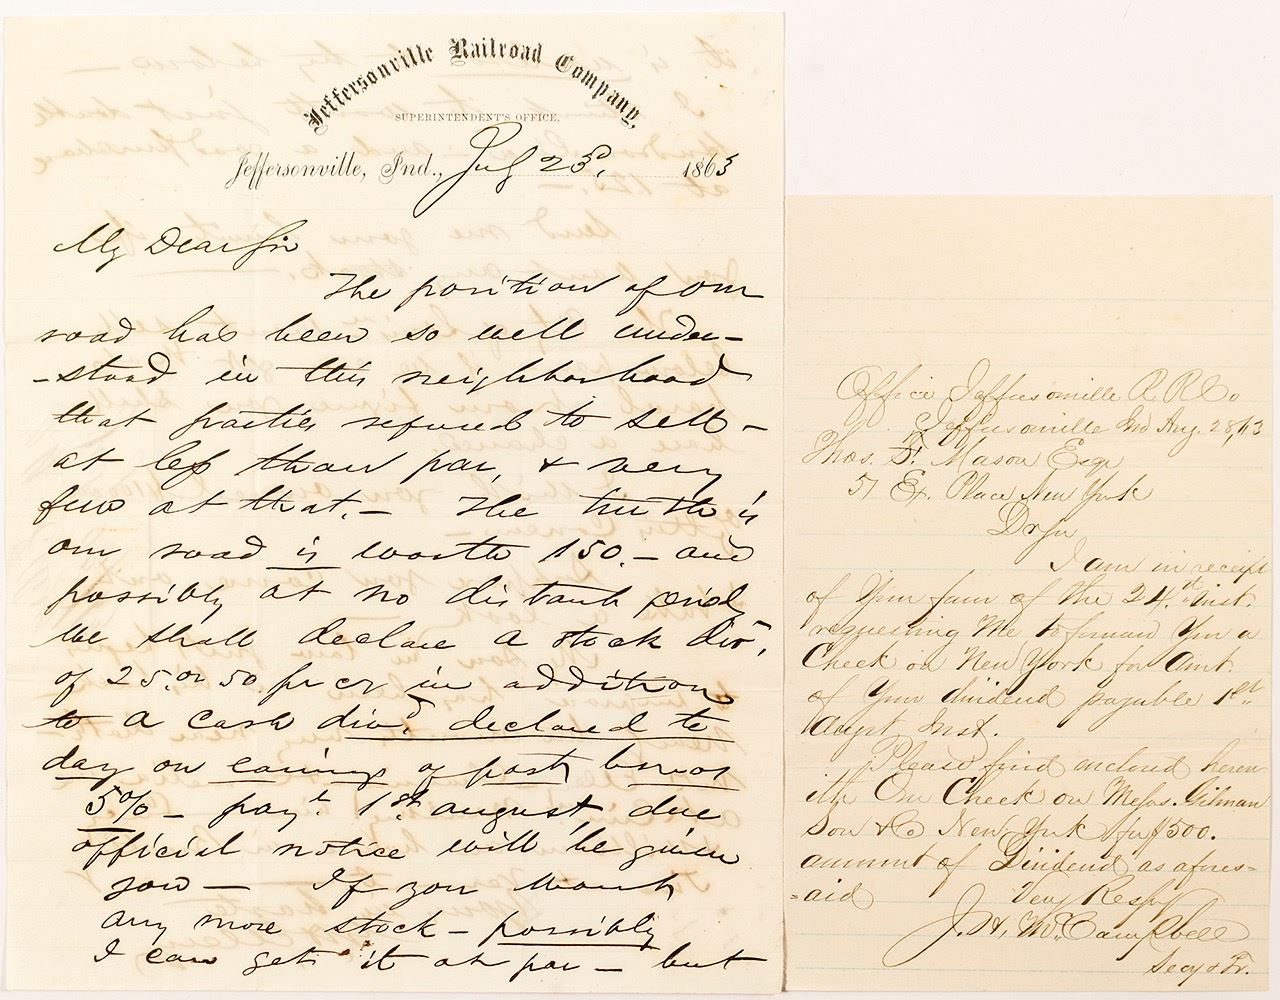 Jeffersonville Railroad Company,
SUPERINTENDENT'S OFFICE,
Jeffersonville, Ind., July 23d, 1863
My Dear Sir
The position of our
road has been so well under-
-stood in this neighborhood
that parties refused to sell -
at less than par, & very
few at that. - The truth is
our road is worth 150. - and
possibly at no distant period
we shall declare a stock div,
of 25. or 50 pr ct in addition
to a cash divd. declared to
day on earnings of past 6 mos
5% - payt. 1st august, due
official notice will be given
you - If you want
any more stock - possibly
I can get it at par - but
Office Jeffersonville R R Co
Jeffersonville Ind Aug. 28, 63
Thos. F. Mason Esqr
51 Ex. Place New York
Dr Sir
I am in receipt
of Your favor of the 24th. inst.
requesting Me to forward You a
Check on New York for Amt.
of Your dividend payable 1st
August Inst.
Please find enclosed herew
ith Our Check on Messrs. Gilman
Son & Co New York for $500.
amount of Dividend as afores-
-aid
Very Respy
J. H. McCampbell
Secy & Tr.